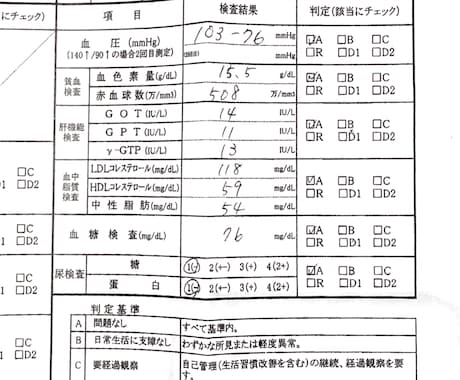 にチェック) 項目 検査結果 判定(該当にチェック)
血圧(mmHg) 103-76 mmHg ☑A □B □C
(140↑/90↑の場合2回目測定) mmHg □R □D1 □D2
貧血検査 血色素量(g/dL) 15.5 g/dL ☑A □B □C
赤血球数(万/mm3) 508 万/mm3 □R □D1 □D2
肝機能検査 GOT(IU/L) 14 IU/L ☑A □B □C
GPT(IU/L) 11 IU/L □R □D1 □D2
γ-GTP(IU/L) 13 IU/L
血中脂質検査 LDLコレステロール(mg/dL) 118 mg/dL ☑A □B □C
HDLコレステロール(mg/dL) 59 mg/dL □R □D1 □D2
中性脂肪(mg/dL) 54 mg/dL
血糖検査(mg/dL) 76 mg/dL ☑A □B □C
□R □D1 □D2
尿検査 糖 1(-) 2(+-) 3(+) 4(2+) ☑A □B □C
蛋白 1(-) 2(+-) 3(+) 4(2+) □R □D1 □D2
□C
D1 □D2
□C
1 □D2
□C
□D2
□C
1 □D2
判定基準
A 問題なし すべて基準内。
B 日常生活に支障なし わずかな所見または軽度異常。
C 要経過観察 自己管理(生活習慣改善を含む)の継続、経過観察を要
す。